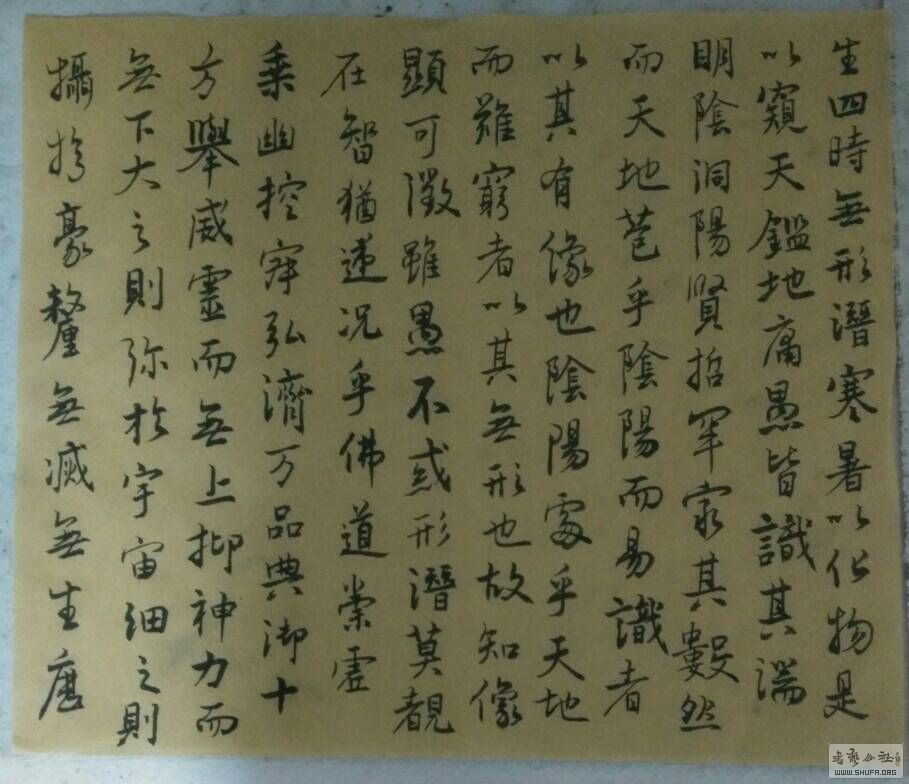 生四時無形潛寒暑以化物是
以窺天鑑地庸愚皆識其端
明陰洞陽賢哲罕窮其數然
而天地苞乎陰陽而易識者
以其有像也陰陽處乎天地
而難窮者以其無形也故知像
顯可徵雖愚不惑形潛莫覩
在智猶迷况乎佛道崇虛
乘幽控寂弘濟万品典御十
方舉威靈而無上抑神力而
無下大之則弥於宇宙細之則
攝於豪釐無滅無生歷
书艺公社
WWW.SHUFA.ORG